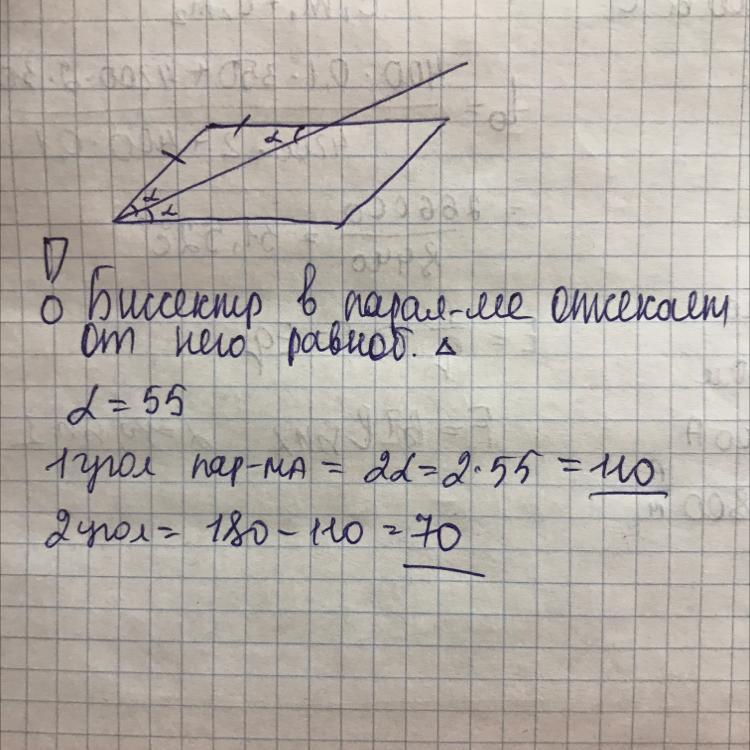 α
α
α
Биссектр в парал-ме отсекает
от него равноб. △
α = 55
1 угол пар-ма = 2α = 2·55 = 110
2 угол = 180 - 110 = 70